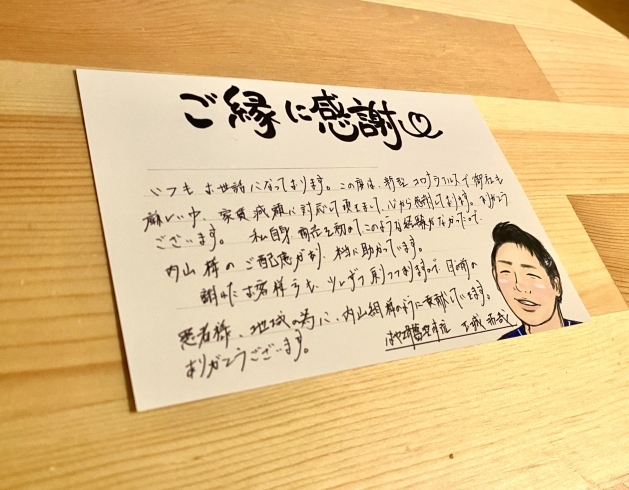 ご縁に感謝
いつもお世話になっております。この度は、新型コロナウイルスで御社も
厳しい中、家賃減額に対応して頂きまして、心から感謝しております。ありがとう
ございます。私自身商売を初めてこのような経験がなかったので
内山様のご配慮があり、本当に助かっています。
お客様も、少しずつ戻って
患者様、地域の為に、内山 様のように貢献していきます。
ありがとうございます。